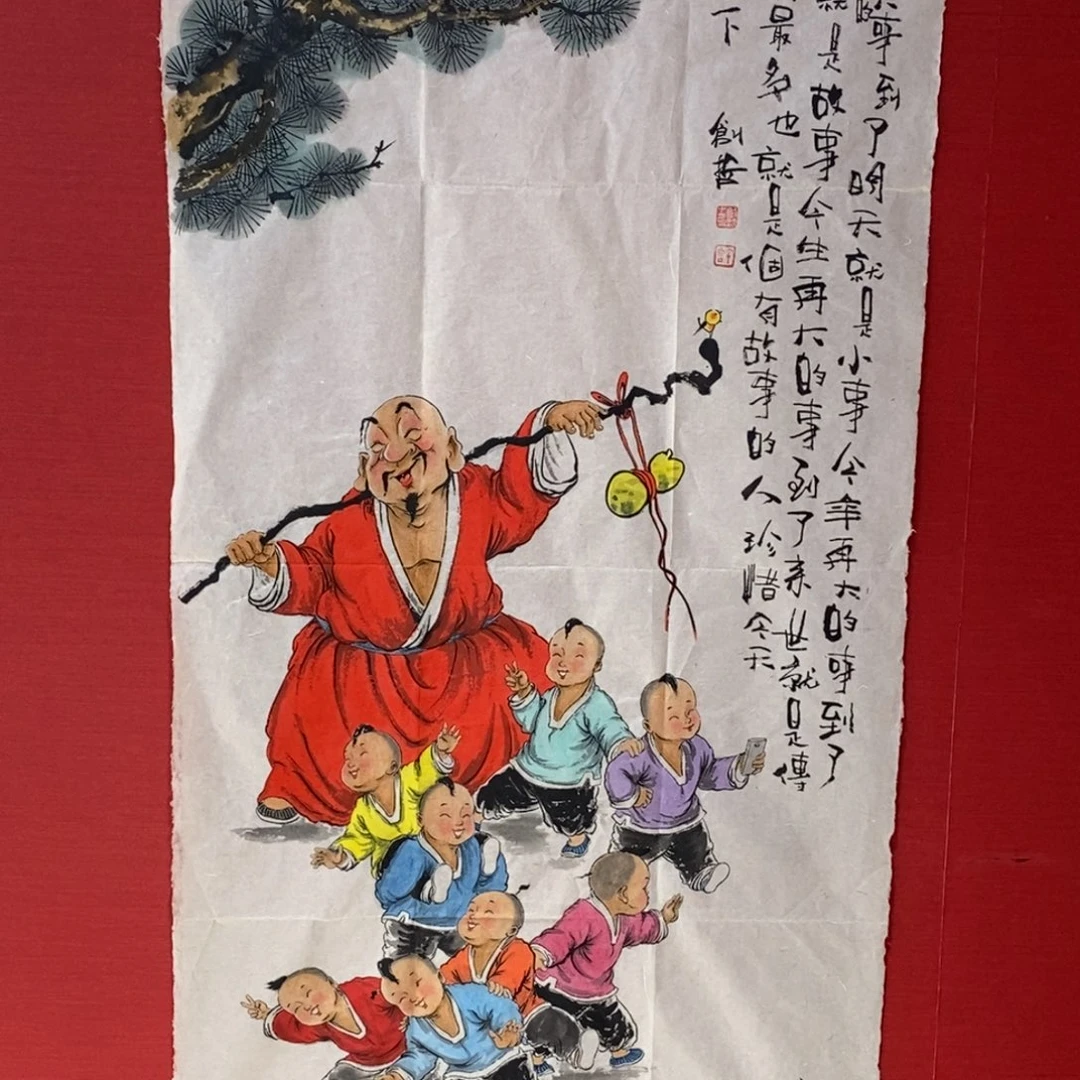 的事到了明天就是小事今年再大的事到了
就是故事今生再大的事到了来世就是傳
最多也就是個有故事的人珍惜今天
下 創哲